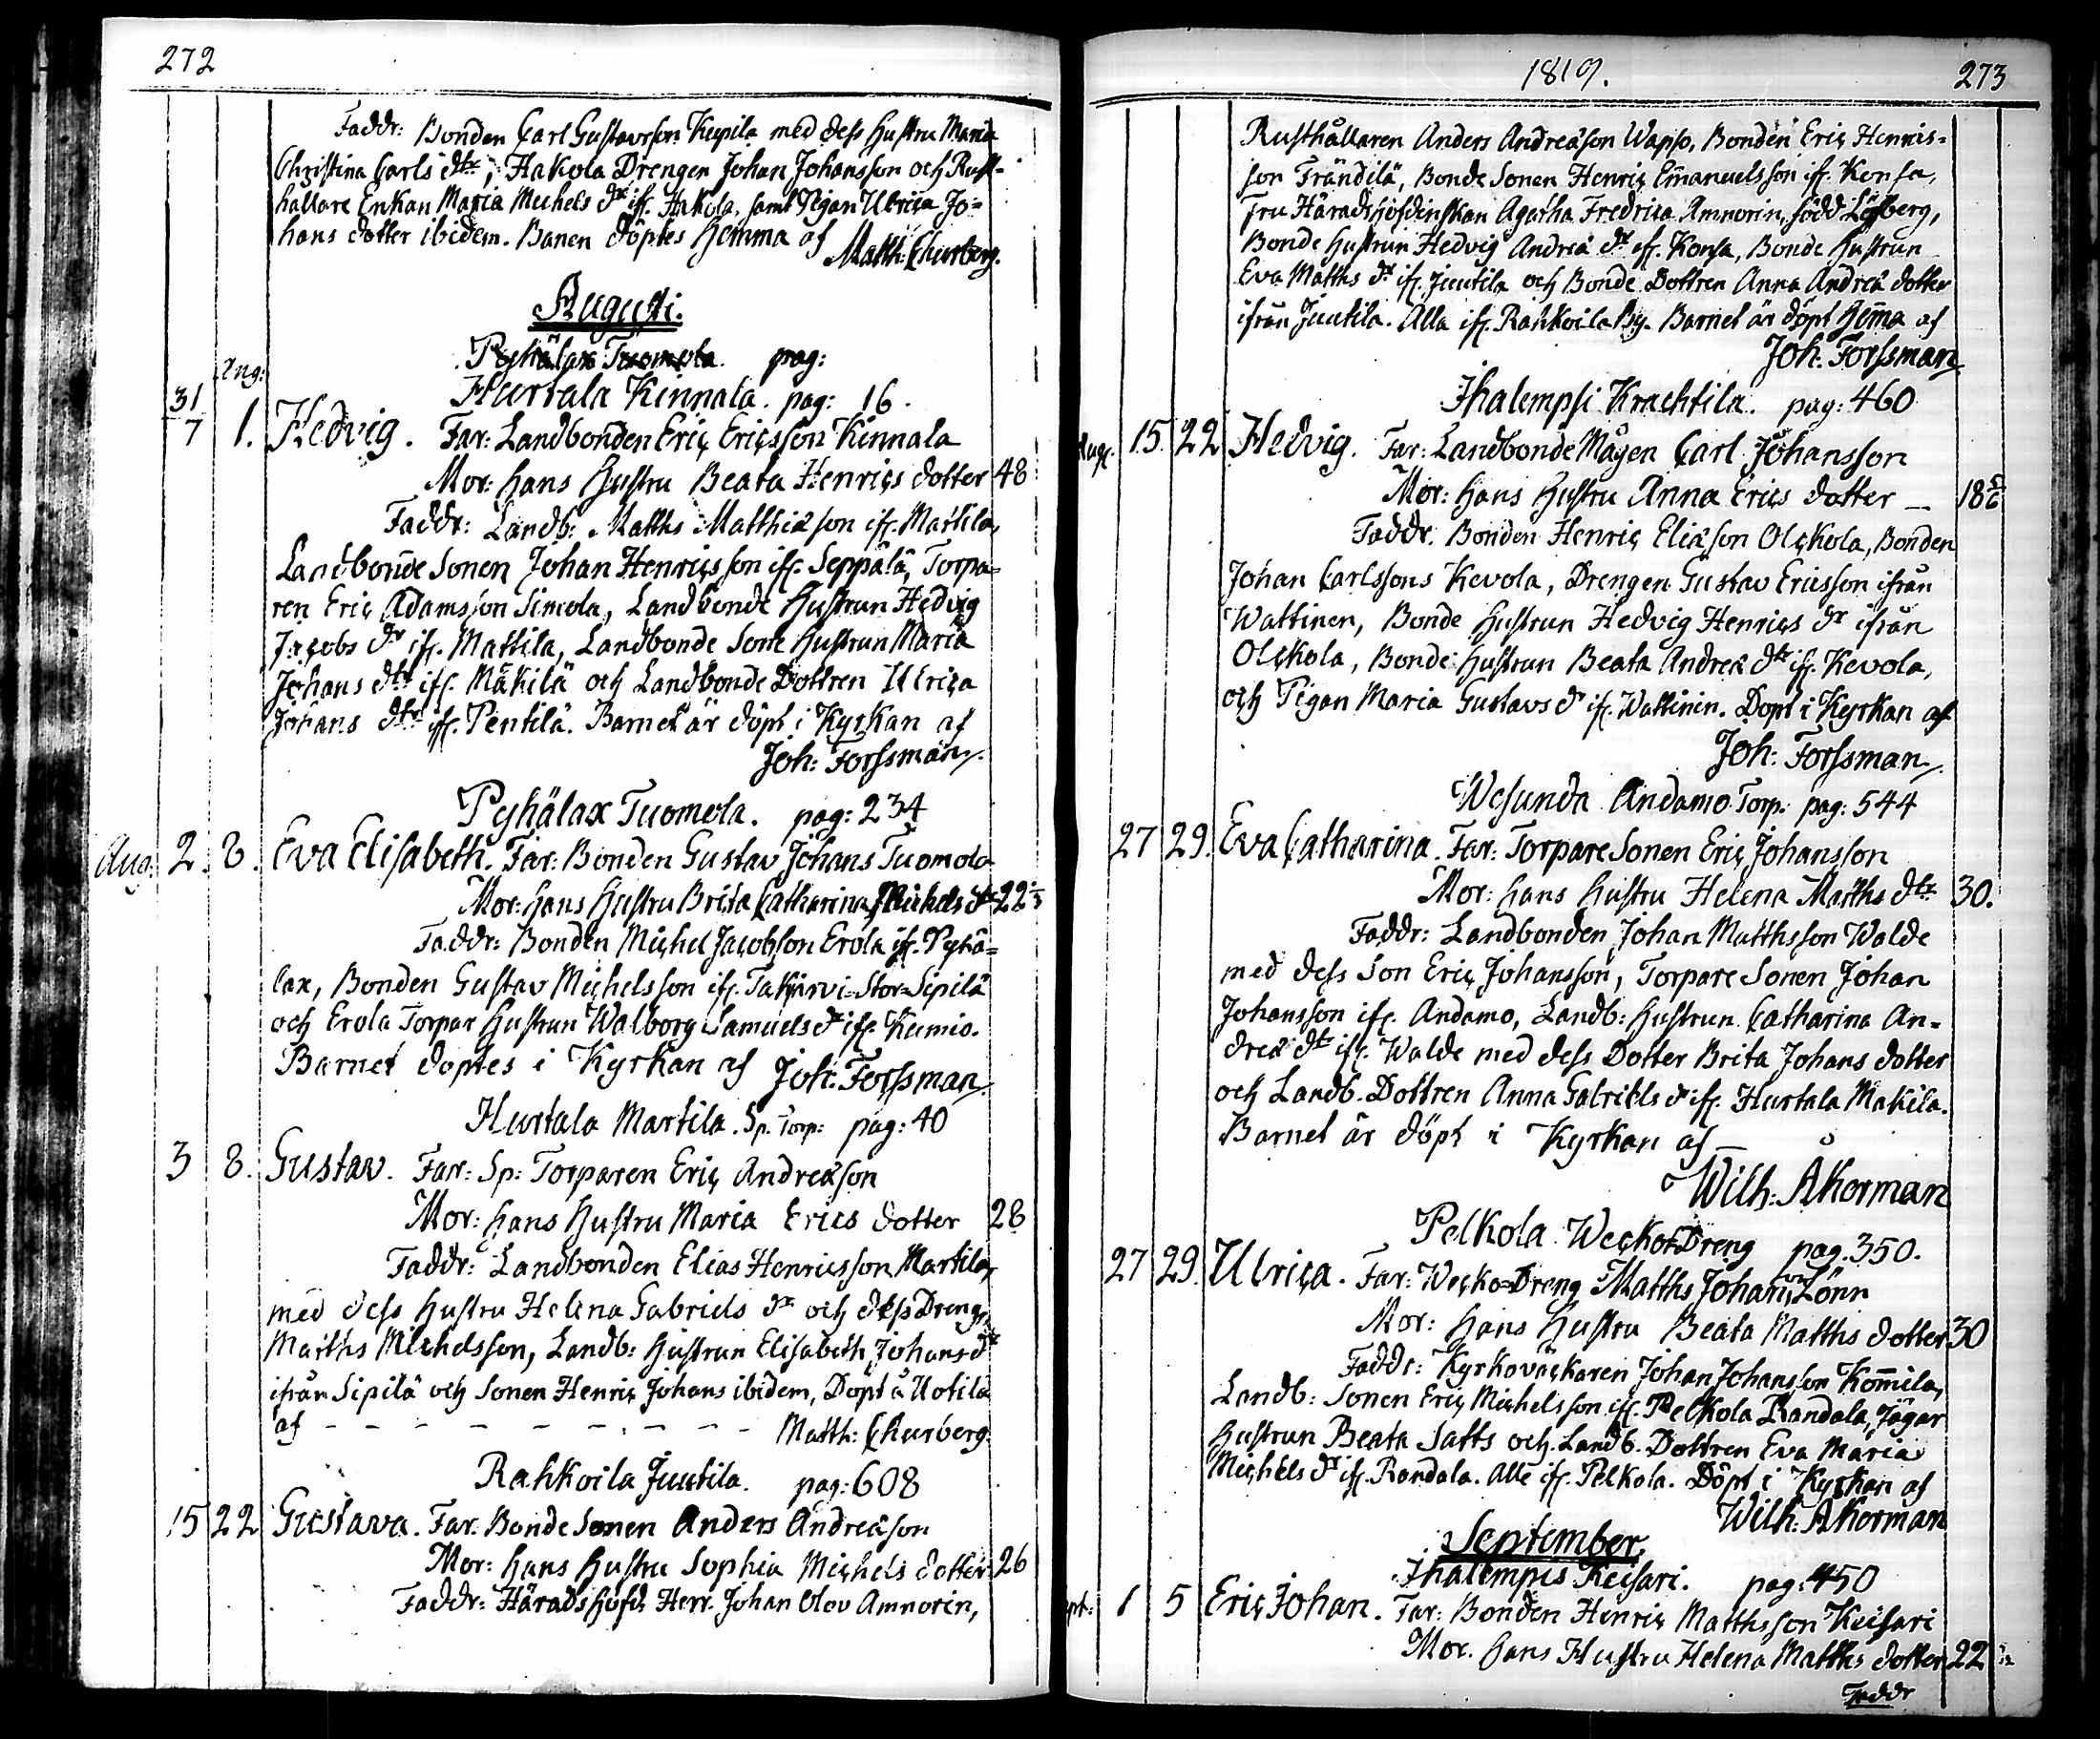 272
Faddr: Bonden Carl Gustavsson Kupila med dess Hustru Maria
Christina Carls dtr, Hakola Drengen Johan Johansson och Rust-
hållare Enkan Maria Michels dr ifr. Hakola, samt Pigan Ulrica Jo=
hans dotter ibidem. Banen döptes hemma af
Matth: Churberg.
Augusti.
Pyhälax Tuomola. pag:
Aug:
Hurtala Kinnala. pag: 16.
31/7 1. Hedvig. Far: Landbonden Eric Ericsson Kinnala
Mor: hans Hustru Beata Henrics dotter 48
Faddr: Landb: Matths Matthiæson ifr. Martila,
Landbonde Sonen Johan Henricsson ifr. Seppälä, Torpa=
ren Eric Adamsson Simola, Landbonde Hustrun Hedvig
Jacobs dr ifr. Mattila, Landbonde Sone Hustrun Maria
Johans dtr ifr. Mäkilä och Landbonde Dottren Ulrica
Johans dtr ifr. Pentilä. Barnet är döpt i Kyrkan af
Joh: Forssman.
Pyhälax Tuomola. pag: 234
Aug: 2. 8. Eva Elisabeth. Far: Bonden Gustav Johans Tuomola
Mor: hans Hustru Brita Catharina Michels dr 22
Faddr: Bonden Michel Jacobsson Erola ifr. Pyhä=
lax, Bonden Gustav Michelsson ifr. Takjärvi Stor=Sipilä
och Erola Torpar Hustrun Walborg Samuels dr ifr. Kumio.
Barnet döptes i Kyrkan af Joh: Forssman.
Hurtala Martila. Sp. Torp: pag: 40
3 8. Gustav. Far: Sp: Torparen Eric Andreæson
Mor: hans Hustru Maria Erics dotter 28
Faddr: Landbonden Elias Henricsson Martila,
med dess Hustru Helena Gabriels dr och dess Dreng
Matths Michelsson, Landb: Hustrun Elisabeth Johans dr
ifrån Sipilä och Sonen Henric Johans ibidem, Döpt å Uotila
af - - - - - - - - Matth: Churberg.
Rahkoila Juutila. pag: 608
15 22 Gustava. Far: Bonde Sonen Anders Andreæson
Mor: hans Hustru Sophia Michels dotter 26
Faddr: Häradshöfd: Herr Johan Olov Amnorin,
1819. 273
Rusthållaren Anders Andreæson Wapso, Bonden Eric Henrics=
son Frändilä, Bonde Sonen Henric Emanuelsson ifr. Konsa,
Fru Häradshöfdinskan Agatha Fredrica Amnorin, född Löfberg,
Bonde Hustrun Hedvig Andreæ dr ifr. Konsa, Bonde Hustrun
Eva Matths dr ifr. Juutila och Bonde Dottren Anna Andreæ dotter
ifrån Juutila. Alla ifr. Rahkoila By. Barnet är döpt hema af
Joh: Forssman
Ihalempsi Krachtila. pag: 460
Aug. 15 22 Hedvig. Far: Landbonde Mågen Carl Johansson
Mor: hans Hustru Anna Erics dotter 18
Faddr. Bonden Henric Eliæson Olckola, Bonden
Johan Carlssons Kevola, Drengen Gustav Ericsson ifrån
Wattinen, Bonde Hustrun Hedvig Henrics dr ifrån
Olckola, Bonde Hustrun Beata Andreæ dtr ifr. Kevola,
och Pigan Maria Gustavs dr ifr. Wattinin. Döpt i Kyrkan af
Joh: Forssman.
Wesunda Andamo Torp. pag: 544
27 29. Eva Catharina. Far: Torpare Sonen Eric Johansson
Mor: hans Hustru Helena Matths dtr 30.
Faddr: Landbonden Johan Matthsson Walde
med dess Son Eric Johansson, Torpare Sonen Johan
Johansson ifr. Andamo, Landb: Hustrun Catharina An=
dreæ dtr ifr. Walde med dess Dotter Brita Johans dotter
och Landb. Dottren Anna Gabriels dr ifr. Hurtala Makila.
Barnet är döpt i Kyrkan af
Wilh: Åkerman
Pelkola Wecko Dreng pag. 350.
27 29. Ulrica. Far: Wecko=Dreng Matths Johansson Lönn
Mor: Hans Hustru Beata Matths dotter 30
Faddr: Kyrkoväckaren Johan Johansson Komila,
Landb: Sonen Eric Michelsson ifr. Pelkola Randala, Jägar
Hustrun Beata Satts och Landb. Dottren Eva Maria
Michels dr ifr. Randala. Alle ifr. Pelkola. Döpt i Kyrkan af
Wilh: Åkerman
September.
Ihalempis Keisari. pag: 450
1 5 Eric Johan. Far: Bonden Henric Matthsson Keisari
Mor. hans Hustru Helena Matths dotter 22
Faddr